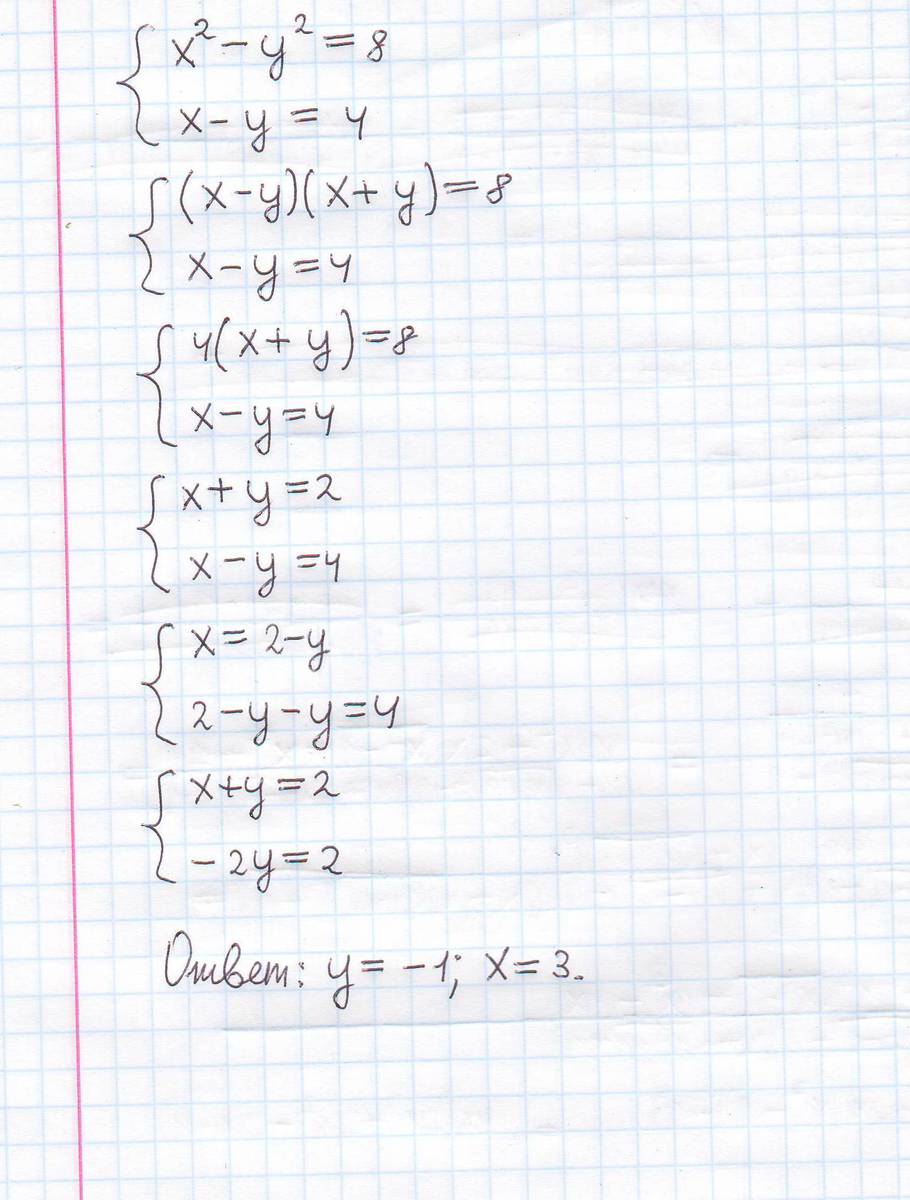 x² - y² = 8
x - y = 4
(x - y)(x + y) = 8
x - y = 4
4(x + y) = 8
x - y = 4
x + y = 2
x - y = 4
x = 2 - y
2 - y - y = 4
x + y = 2
- 2y = 2
Ответ: y = -1; x = 3.